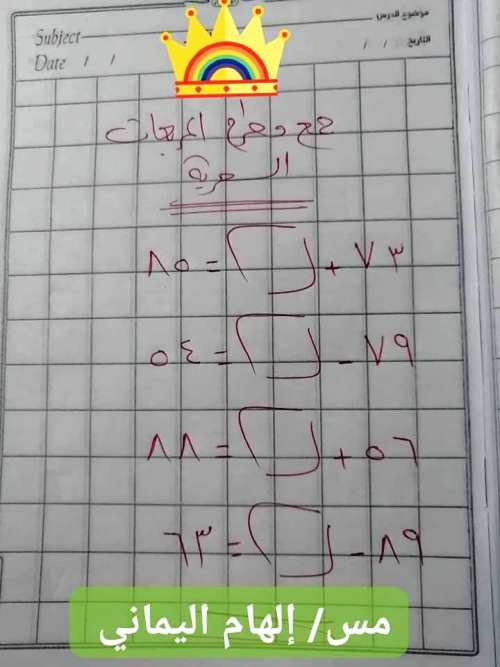 موضوع الدرس
Subject
التاريخ / /
Date / /
جمع وطرح المربعات
السحرية
٧٣ + = ٨٥
٧٩ - = ٥٤
٥٦ + = ٨٨
٨٩ - = ٦٣
مس/ إلهام اليماني